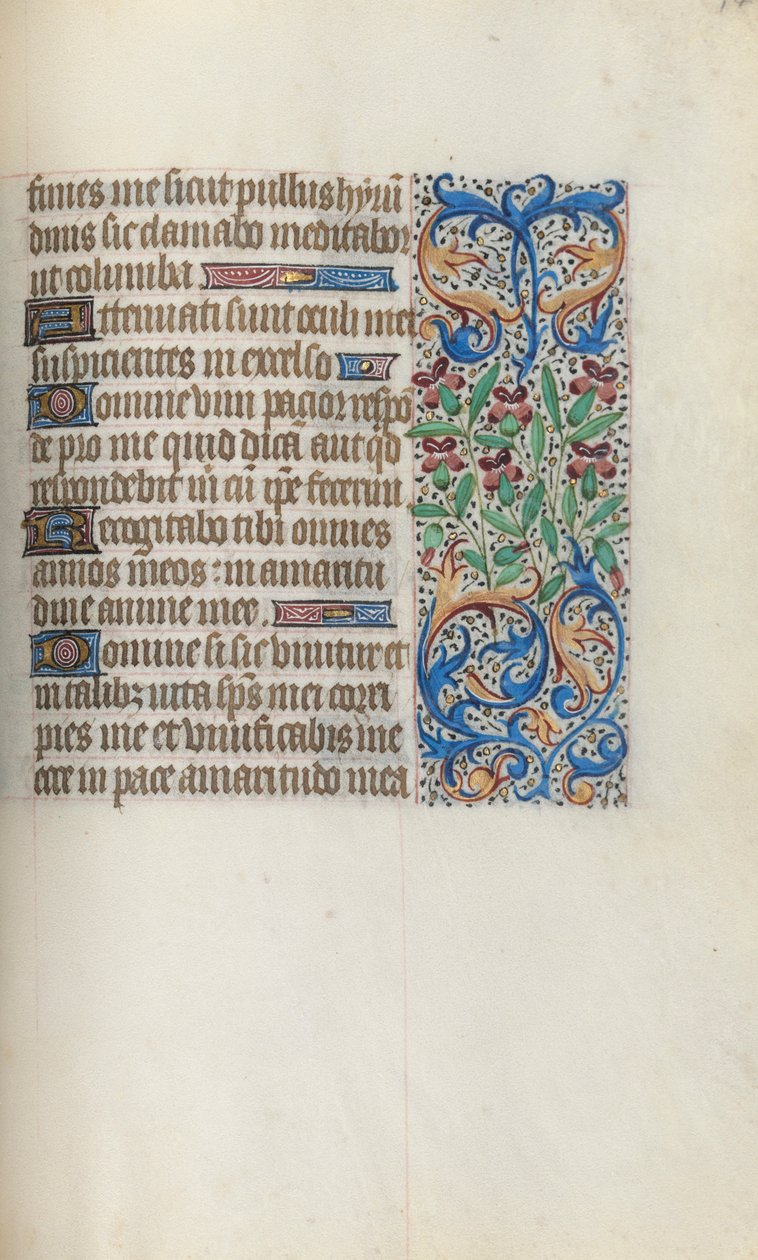 finies me sicut pullus hyrũ
dinis sic clamabo meditabor
ut columba.
Attenuati sunt oculi mei
suspicientes in excelso
Domine vim pacior respõ
de pro me quid dicã aut qd
respondebit m̃ cũ ip̃e fecerim
Recogitabo tibi omnes
annos meos : in amaritu
dine anime mee.
Domine si sic vivitur et
in talibꝫ vita sp̃s mei corri
pies me et vivificabis me
ecce in pace amaritudo mea